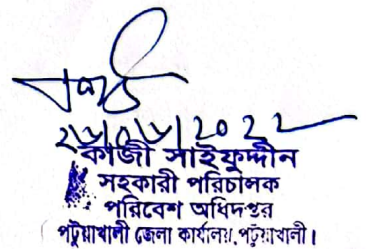 ২৮/০৮/2022
কাজী সাইফুদ্দীন
সহকারী পরিচালক
পরিবেশ অধিদপ্তর
পটুয়াখালী জেলা কার্যালয়, পটুয়াখালী।